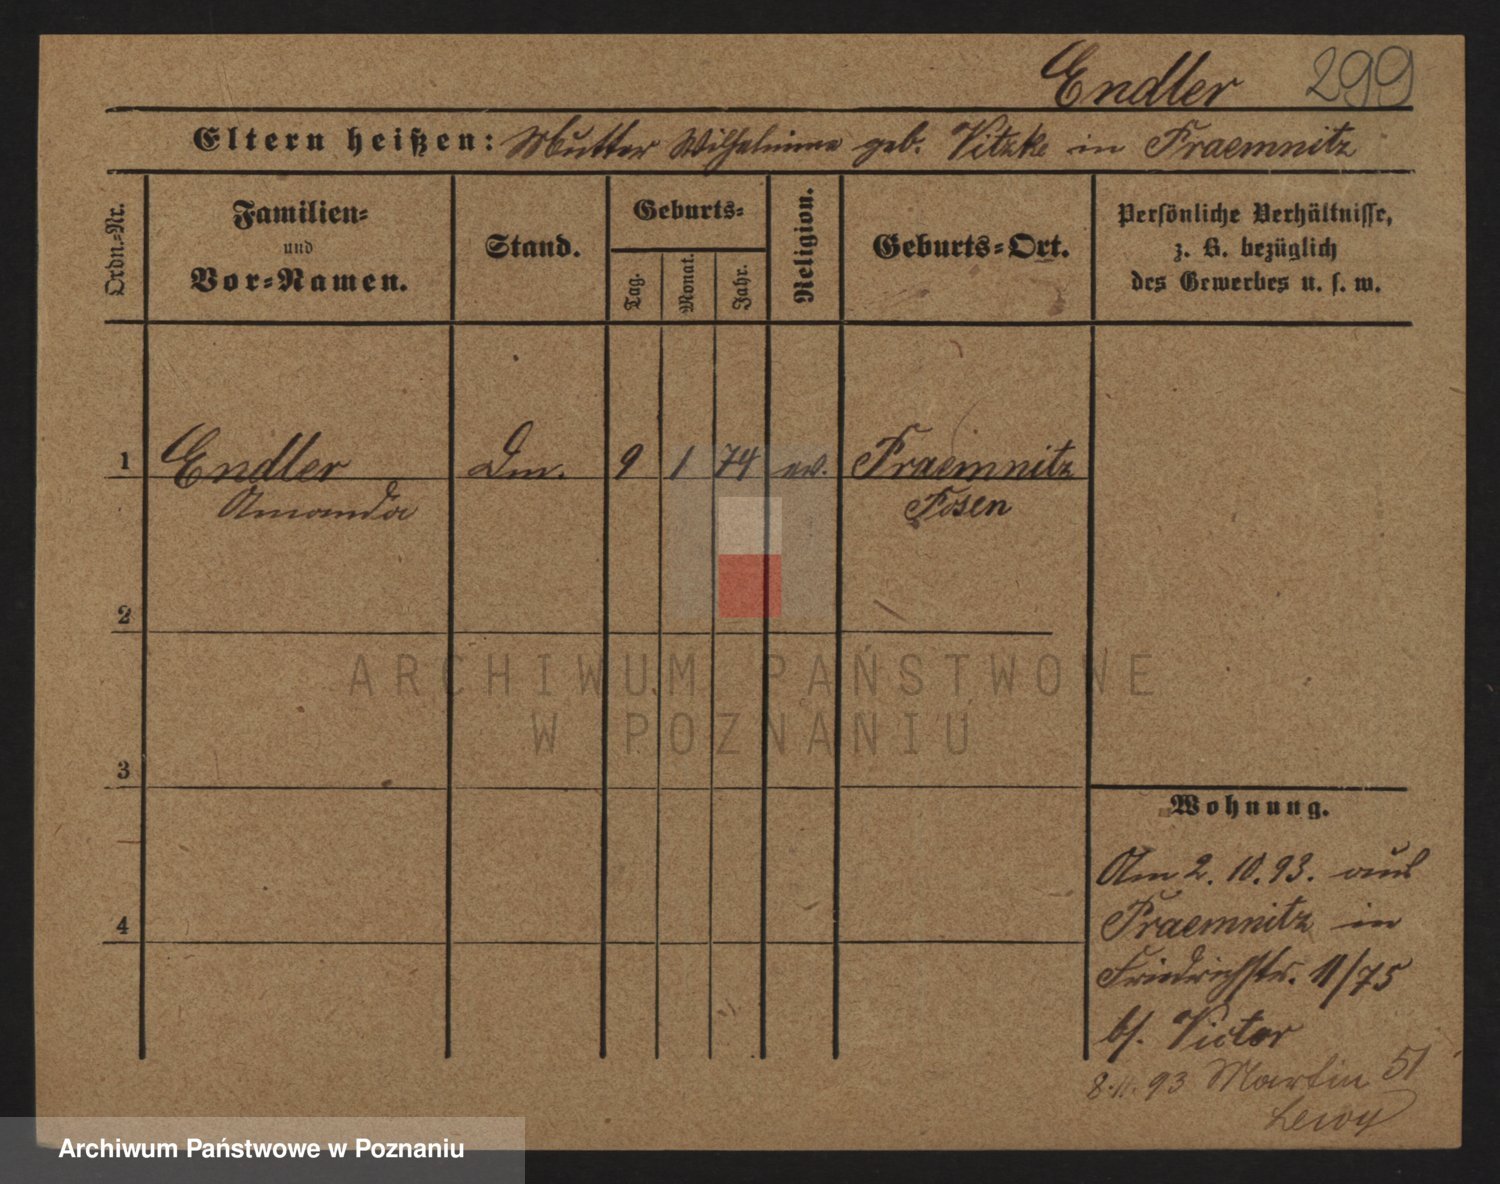 Endler 299
Eltern heißen: Mutter Wilhelmine geb. Vitzke in Praemnitz
Ordn.-Nr.
Familien-
und
Vor-Namen.
Stand.
Geburts-
Tag.
Monat.
Jahr.
Religion.
Geburts-Ort.
Persönliche Verhältnisse,
z. B. bezüglich
des Gewerbes u. s. w.
1 Endler Dm. 9 1 74 ev. Praemnitz
Amanda Posen
2
3
4
Wohnung.
Am 2. 10. 93. aus
Praemnitz in
Friedrichstr. 11/75
bs. Victor
8.11.93 Martin 51
Lewy
ARCHIWUM PAŃSTWOWE
W POZNANIU
Archiwum Państwowe w Poznaniu